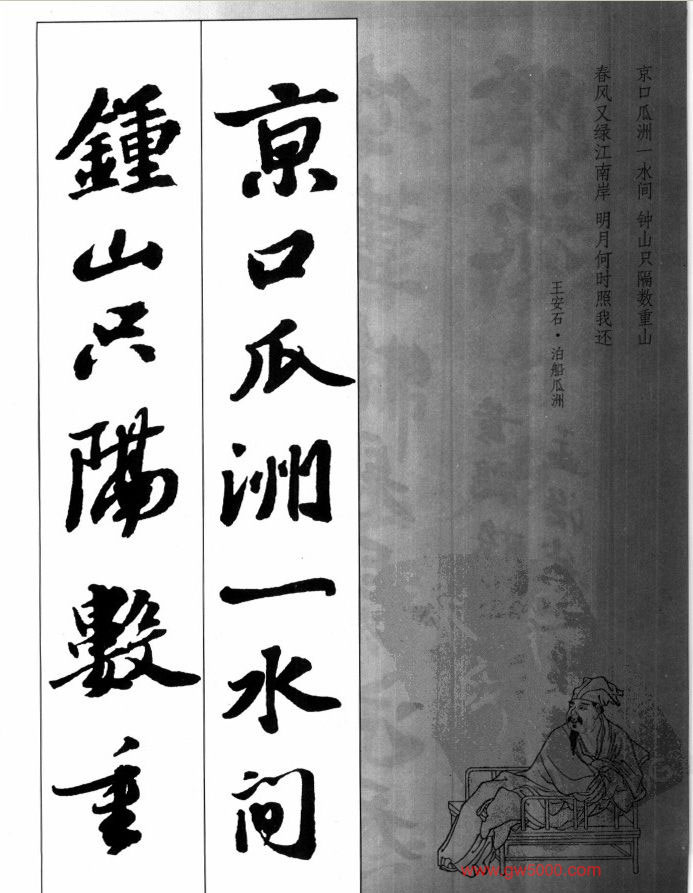 京口瓜洲一水间 钟山只隔数重山
春风又绿江南岸 明月何时照我还
王安石·泊船瓜洲
京口瓜洲一水间
鍾山只隔數重
www.gw5000.com